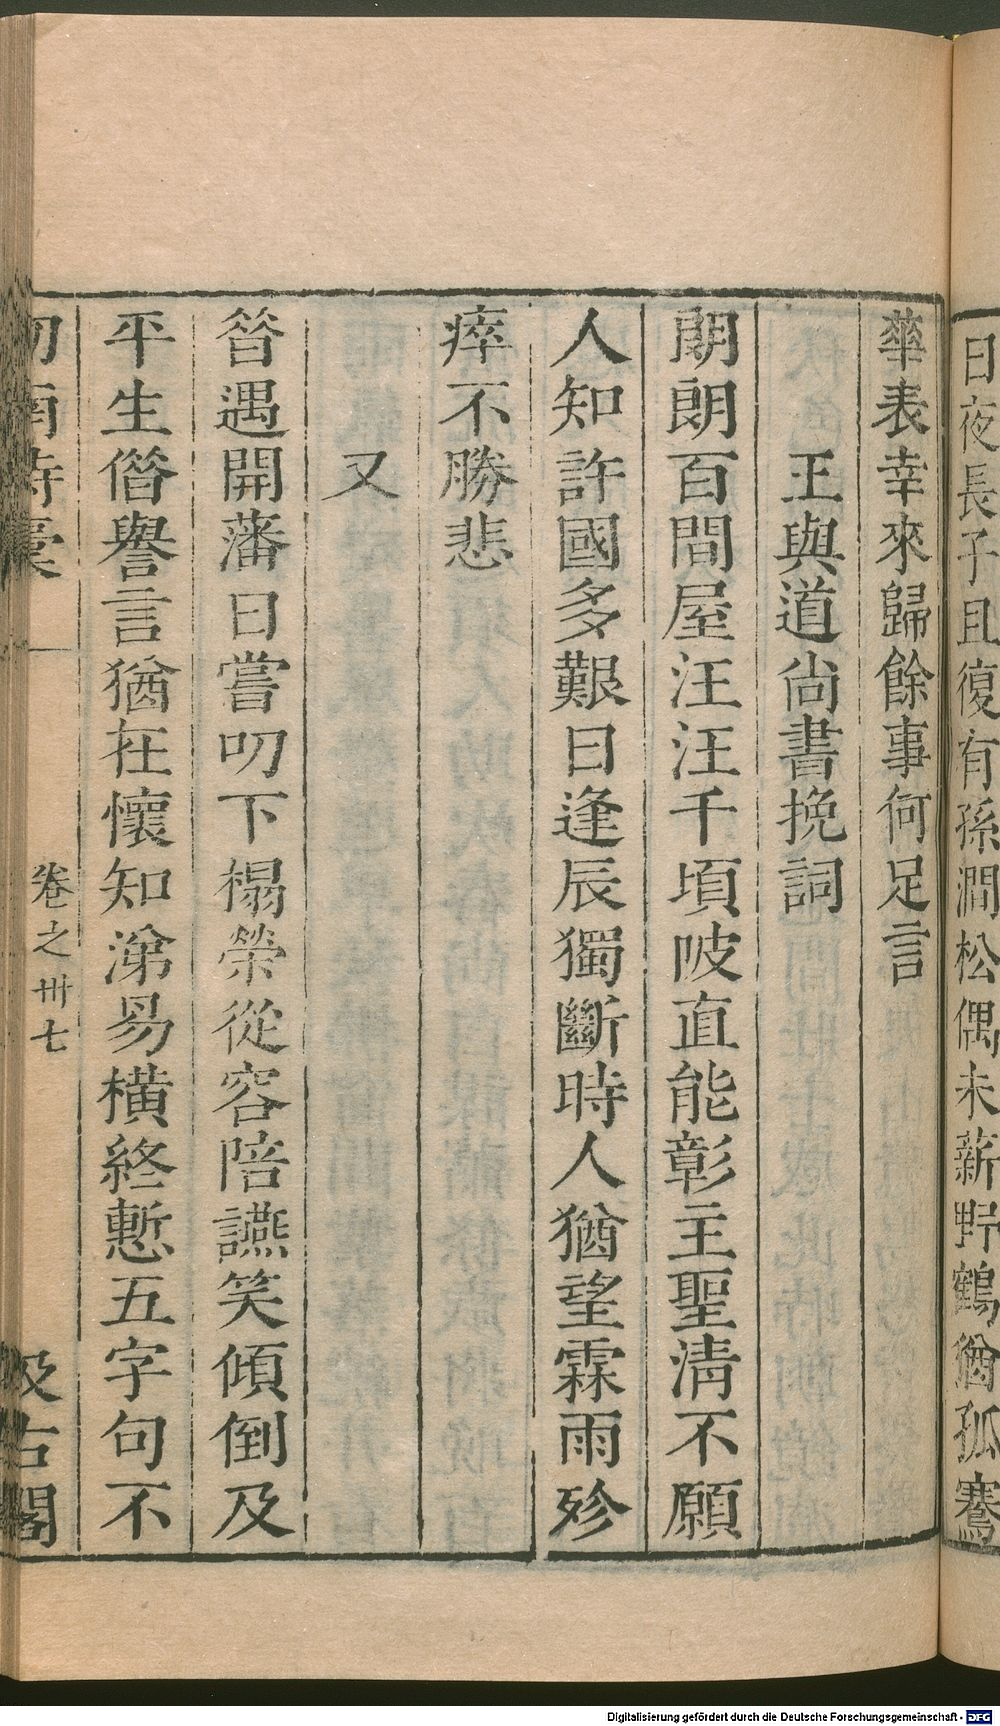 日夜長子且復有孫澗松偶未薪野鶴猶孤騫
華表幸來歸餘事何足言
王與道尚書挽詞
朗朗百間屋汪汪千頃陂直能彰主聖清不願
人知許國多艱日逢辰獨斷時人猶望霖雨殄
瘁不勝悲
又
昝遇開藩日嘗叨下榻榮從容陪讌笑傾倒及
平生僭譽言猶在懷知涕易橫終慙五字句不
卷之卅七
汲古閣
Digitalisierung gefördert durch die Deutsche Forschungsgemeinschaft - DFG